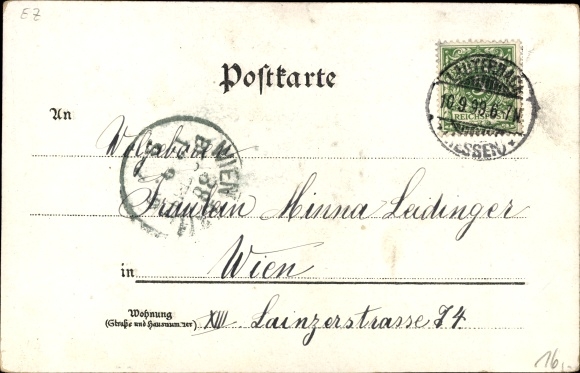 EZ
Postkarte
LAUTERBACH
10.9.99.6-7N
REICHSPOST
(HESSEN)
An
Wolgeboren
WIEN
Fräulein Minna Leidinger
in Wien
Wohnung
(Straße und Hausnummer) XIII Lainzerstrasse 74
16,-